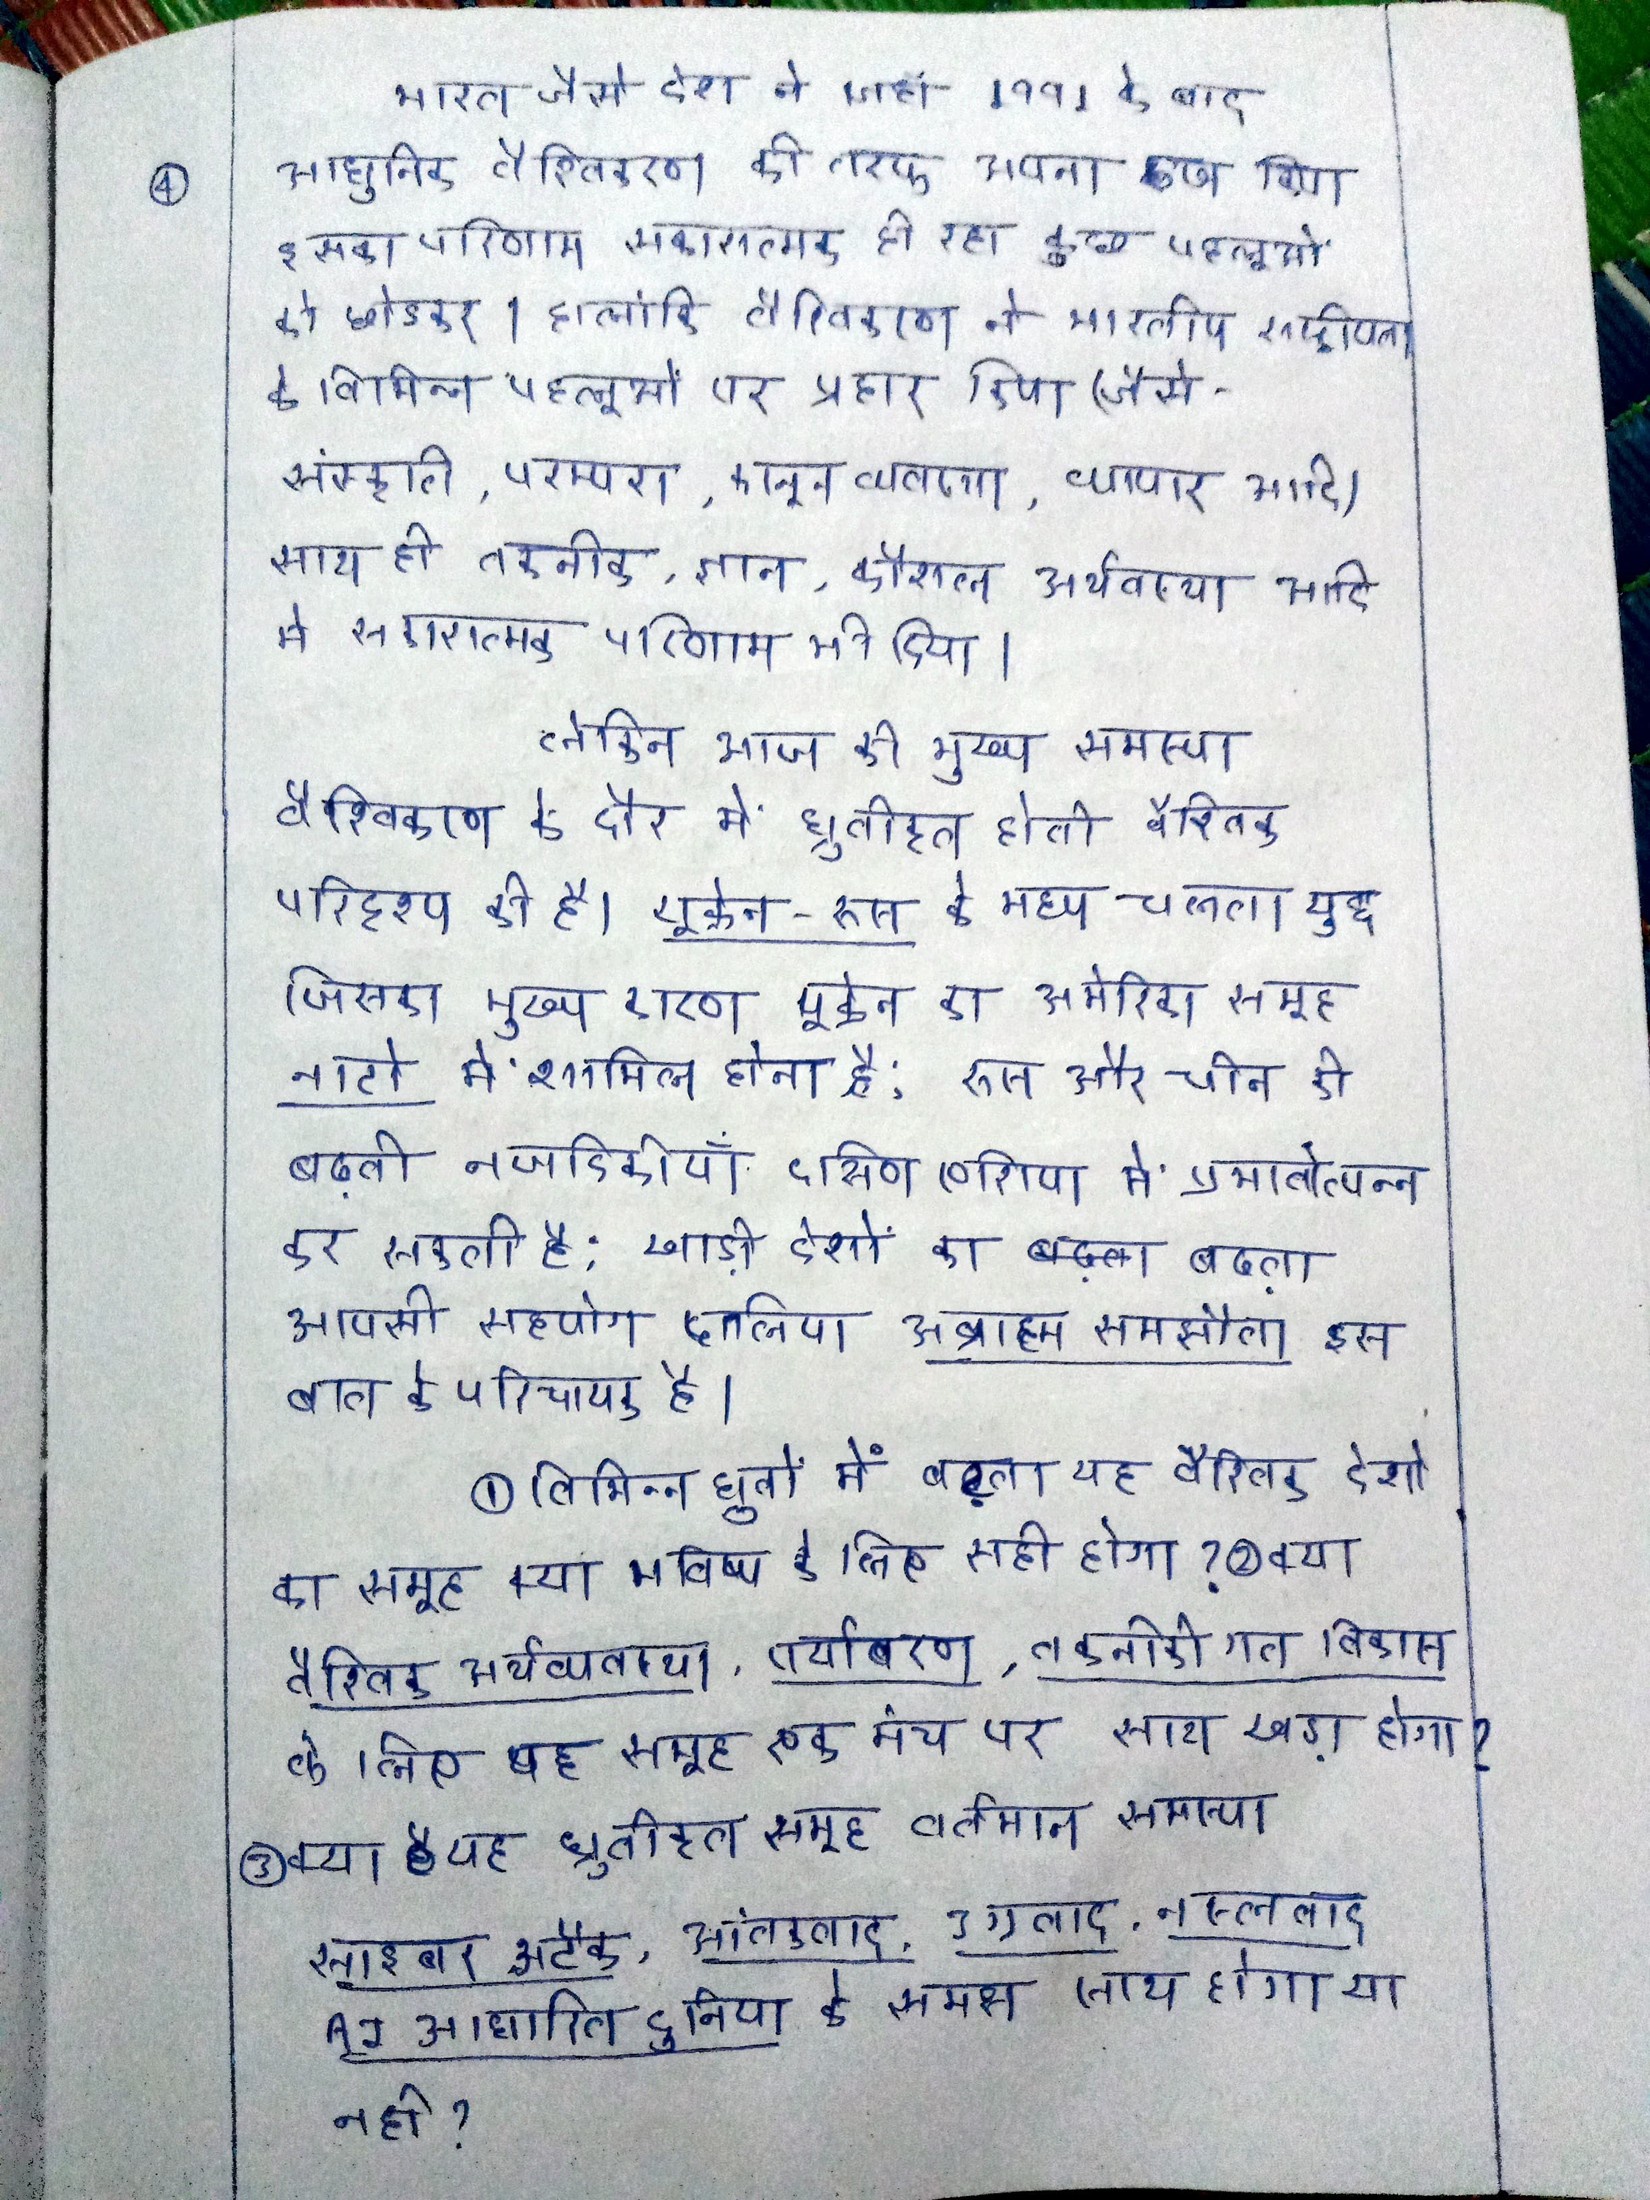 भारत जैसे देश ने जहां 1991 के बाद
④ आधुनिक वैश्विकरण की तरफ अपना रूख किया
इसका परिणाम सकारात्मक ही रहा कुछ पहलूओं
को छोडकर। हालांकि वैश्विकरण ने भारतीय
के विभिन्न पहलूओं पर प्रहार किया (जैसे-
संस्कृति, परम्परा, कानून व्यवस्था, व्यापार आदि)
साथ ही तकनीक, ज्ञान, कौशल अर्थवस्था आदि
में सकारात्मक परिणाम भी दिया।
लेकिन आज की मुख्य समस्या
वैश्विकरण के दौर में ध्रुवीकृत होती वैश्विक
परिदृश्य की है। यूक्रेन-रूस के मध्य चलता युद्ध
जिसका मुख्य कारण यूक्रेन का अमेरिका समूह
नाटो में शामिल होना है; रूस और चीन की
बढ़ती नजदिकीयाँ दक्षिण एशिया में प्रभावोत्पन्न
कर सकती है; खाड़ी देशों का बढ़ता बढ़ता
आपसी सहयोग अब्राहम समझौता इस
बात के परिचायक है।
① विभिन्न ध्रुवों में बढ़ता यह वैश्विक देशो
का समूह क्या भविष्य के लिए सही होगा? ② क्या
वैश्विक अर्थव्यवस्था, पर्यावरण, तकनीकी गत विकास
के लिए यह समूह एक मंच पर साथ खड़ा होगा?
③ क्या यह ध्रुवीकृत समूह वर्तमान समस्या
साइबर अटैक, आंतकवाद, उग्रवाद, नस्लवाद
AI आधारित दुनिया के समक्ष साथ होगा या
नही?